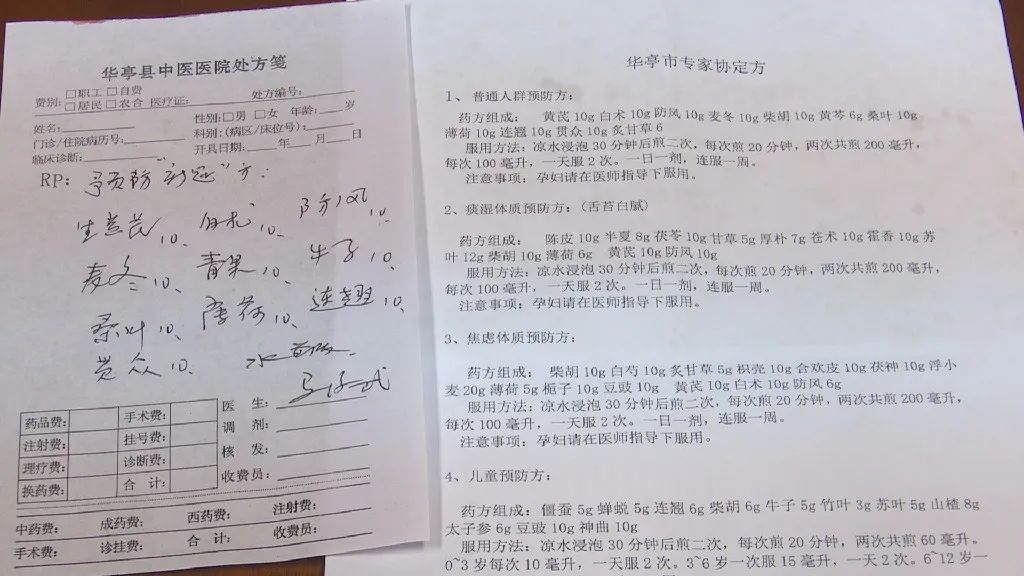 华亭县中医医院处方笺
费别: □职工 □自费
□居民 □农合 医疗证: 处方编号:
姓名: 性别: □男 □女 年龄: 岁
门诊/住院病历号: 科别:(病区/床位号):
临床诊断: 开具日期: 年 月 日
RP: 预防"新冠"方:
生黄芪10、 白术10、 防风10、
麦冬10、 青果10、 牛子10、
桑叶10、 薄荷10、 连翘10、
贯众10、 水煎服
药品费: 手术费: 医 生:
注射费: 挂号费: 调 剂:
理疗费: 诊断费: 核 发:
换药费: 合 计: 收费员:
中药费: 成药费: 西药费: 注射费:
手术费: 诊挂费: 合 计: 收费员:
华亭市专家协定方
1、普通人群预防方:
药方组成: 黄芪 10g 白术 10g 防风 10g 麦冬 10g 柴胡 10g 黄芩 6g 桑叶 10g
薄荷 10g 连翘 10g 贯众 10g 炙甘草 6
服用方法:凉水浸泡 30 分钟后煎二次,每次煎 20 分钟,两次共煎 200 毫升,
每次 100 毫升,一天服 2 次。一日一剂,连服一周。
注意事项:孕妇请在医师指导下服用。
2、痰湿体质预防方:(舌苔白腻)
药方组成: 陈皮 10g 半夏 8g 茯苓 10g 甘草 5g 厚朴 7g 苍术 10g 霍香 10g 苏
叶 12g 柴胡 10g 薄荷 6g 黄芪 10g 防风 10g
服用方法:凉水浸泡 30 分钟后煎二次,每次煎 20 分钟,两次共煎 200 毫升,
每次 100 毫升,一天服 2 次。一日一剂,连服一周。
注意事项:孕妇请在医师指导下服用。
3、焦虑体质预防方:
药方组成: 柴胡 10g 白芍 10g 炙甘草 5g 枳壳 10g 合欢皮 10g 茯神 10g 浮小
麦 20g 薄荷 5g 栀子 10g 豆豉 10g 黄芪 10g 白术 10g 防风 6g
服用方法:凉水浸泡 30 分钟后煎二次,每次煎 20 分钟,两次共煎 200 毫升,
每次 100 毫升,一天服 2 次。一日一剂,连服一周。
注意事项:孕妇请在医师指导下服用。
4、儿童预防方:
药方组成:僵蚕 5g 蝉蜕 5g 连翘 6g 柴胡 6g 牛子 5g 竹叶 3g 苏叶 5g 山楂 8g
太子参 6g 豆豉 10g 神曲 10g
服用方法:凉水浸泡 30 分钟后煎二次,每次煎 20 分钟,两次共煎 60 毫升。
0~3 岁每次 10 毫升,一天 2 次。3~6 岁一次服 15 毫升,一天 2 次。6~12 岁一